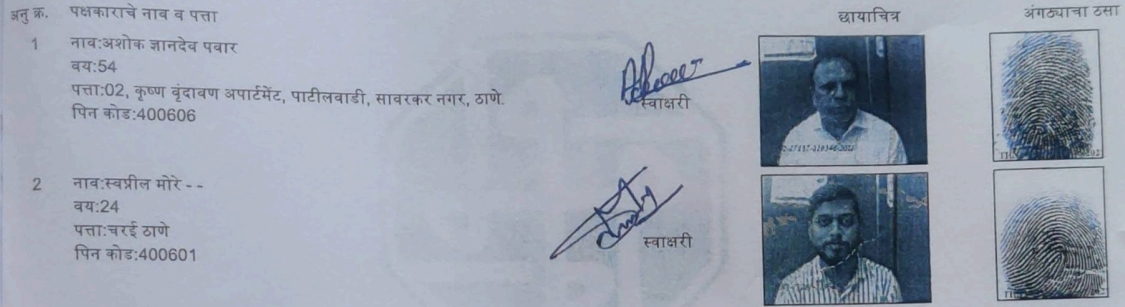 अनु क्र. पक्षकाराचे नाव व पत्ता छायाचित्र अंगठ्याचा ठसा
1 नाव:अशोक ज्ञानदेव पवार
वय:54
पत्ता:02, कृष्ण वृंदावण अपार्टमेंट, पाटीलवाडी, सावरकर नगर, ठाणे.
पिन कोड:400606
स्वाक्षरी
2 नाव:स्वप्नील मोरे - -
वय:24
पत्ता:चरई ठाणे
पिन कोड:400601
स्वाक्षरी